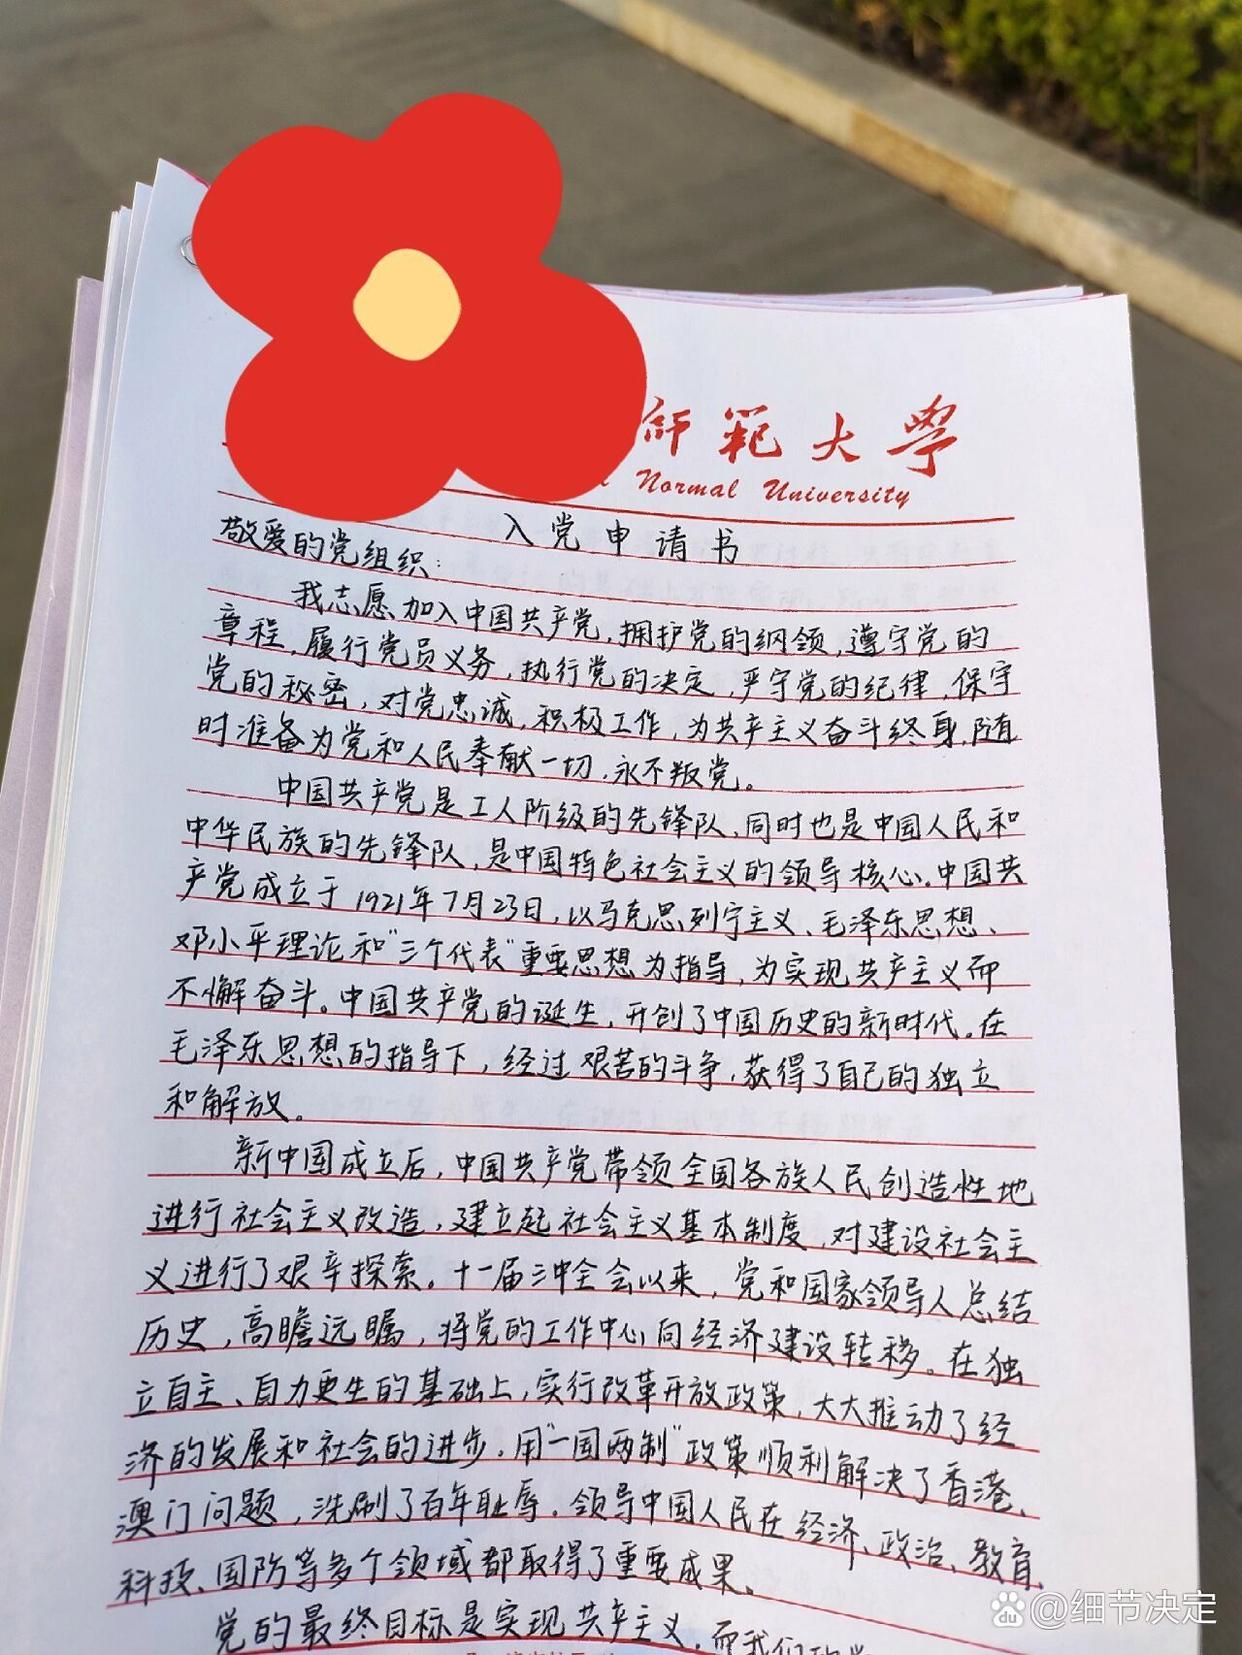 师範大學
Normal University
入党申请书
敬爱的党组织：
我志愿加入中国共产党，拥护党的纲领，遵守党的
章程，履行党员义务，执行党的决定，严守党的纪律，保守
党的秘密，对党忠诚，积极工作，为共产主义奋斗终身，随
时准备为党和人民奉献一切，永不叛党。
中国共产党是工人阶级的先锋队，同时也是中国人民和
中华民族的先锋队，是中国特色社会主义的领导核心。中国共
产党成立于1921年7月23日，以马克思列宁主义、毛泽东思想、
邓小平理论和“三个代表”重要思想为指导，为实现共产主义而
不懈奋斗。中国共产党的诞生，开创了中国历史的新时代。在
毛泽东思想的指导下，经过艰苦的斗争，获得了自己的独立
和解放。
新中国成立后，中国共产党带领全国各族人民创造性地
进行社会主义改造，建立起社会主义基本制度，对建设社会主
义进行了艰辛探索。十一届三中全会以来，党和国家领导人总结
历史，高瞻远瞩，将党的工作中心向经济建设转移。在独
立自主、自力更生的基础上，实行改革开放政策，大大推动了经
济的发展和社会的进步。用“一国两制”政策顺利解决了香港、
澳门问题，洗刷了百年耻辱。领导中国人民在经济、政治、教育、
科技、国防等多个领域都取得了重要成果。
党的最终目标是实现共产主义，而我们
@细节决定